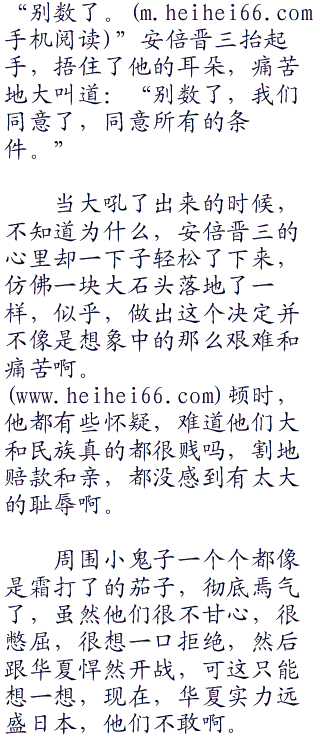 “别数了。(m.heihei66.com
手机阅读)”安倍晋三抬起
手，捂住了他的耳朵，痛苦
地大叫道：“别数了，我们
同意了，同意所有的条
件。”
当大吼了出来的时候，
不知道为什么，安倍晋三的
心里却一下子轻松了下来，
仿佛一块大石头落地了一
样，似乎，做出这个决定并
不像是想象中的那么艰难和
痛苦啊。
(www.heihei66.com)顿时，
他都有些怀疑，难道他们大
和民族真的都很贱吗，割地
赔款和亲，都没感到有太大
的耻辱啊。
周围小鬼子一个个都像
是霜打了的茄子，彻底焉气
了，虽然他们很不甘心，很
憋屈，很想一口拒绝，然后
跟华夏悍然开战，可这只能
想一想，现在，华夏实力远
盛日本，他们不敢啊。